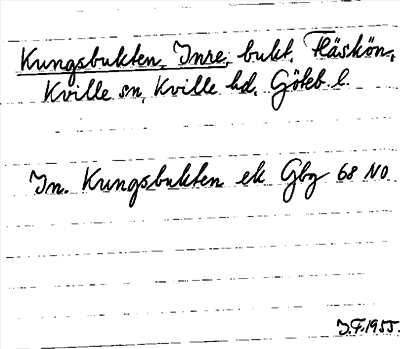 Kungsbukten, Inre, bukt, Fläskön,
Kville sn, Kville hd, Göteb. l.
In. Kungsbukten ek Gbg 68 NO
J.F.1955.